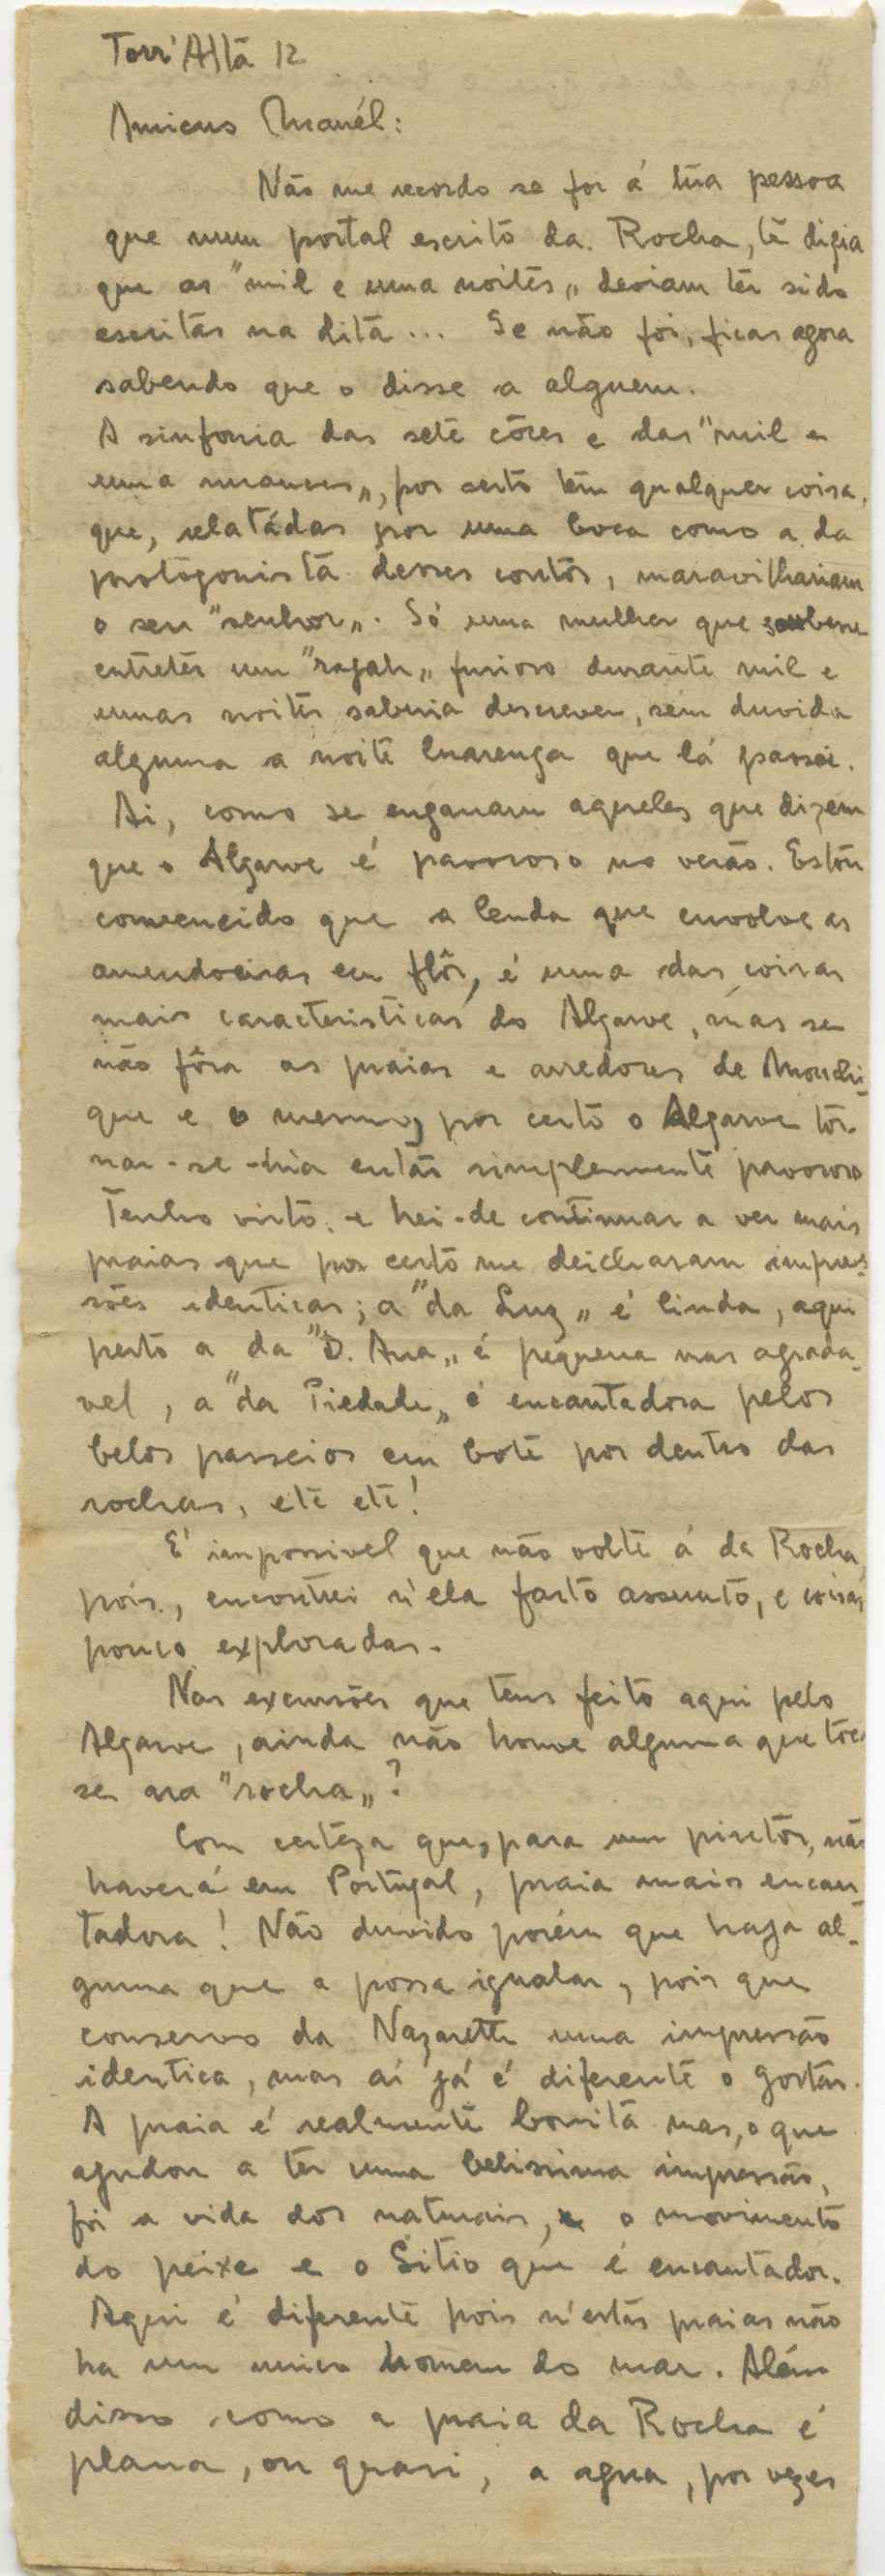 Torr'Altã 12
Amicus Manél:
Não me recordo se foi á tua pessoa
que num postal escrito da Rocha, te dizia
que as "mil e uma noites„ deviam ter sido
escritas na dita... Se não foi, ficas agora
sabendo que o disse a alguem.
A sinfonia das sete côres e das "mil e
uma nuances„, por certo tem qualquer coisa,
que, relatádas por uma boca como a da
protogonista desses contos, maravilhariam
o seu "senhor„. Só uma mulher que soubesse
entreter um "rajah„ furioso durante mil e
umas noites saberia descrever, sem duvida
alguma a noite luarenga que lá passei.
Ai, como se enganam aqueles que dizem
que o Algarve é pavoroso no verão. Estou
convencido que a lenda que envolve as
amendoeiras em flôr, é uma das coisas
mais caracteristicas do Algarve, mas se
não fôra as praias e arredores de Monchi-
que e o mesmo, por certo o Algarve tor-
nar-se-hia então simplesmente pavoroso
Tenho visto e hei-de continuar a ver mais
praias que por certo me deicharam impres-
sões identicas; a "da Luz„ é linda, aqui
perto a da "D. Ana„ é pequena mas agrada-
vel, a "da Piedade„ é encantadora pelos
belos passeios em bote por dentro das
rochas, etc etc!
E' impossivel que não volte á da Rocha
pois, encontrei n'ela farto assunto, e coisas
pouco exploradas.
Nas excursões que tens feito aqui pelo
Algarve, ainda não houve alguma que toca
se na "rocha„?
Com certêza que, para um pintor, não
haverá em Portugal, praia mais encan-
tadora! Não duvido porém que haja al-
guma que a possa igualar, pois que
conservo da Nazareth uma impressão
identica, mas aí já é diferente o gostar.
A praia é realmente bonita mas, o que
ajudou a ter uma belissima impressão,
foi a vida dos naturais, o movimento
do peixe e o Sitio que é encantador.
Aqui é diferente pois n'estas praias não
ha um unico homem do mar. Além
disso como a praia da Rocha é
plana, ou quasi, a agua, por vezes